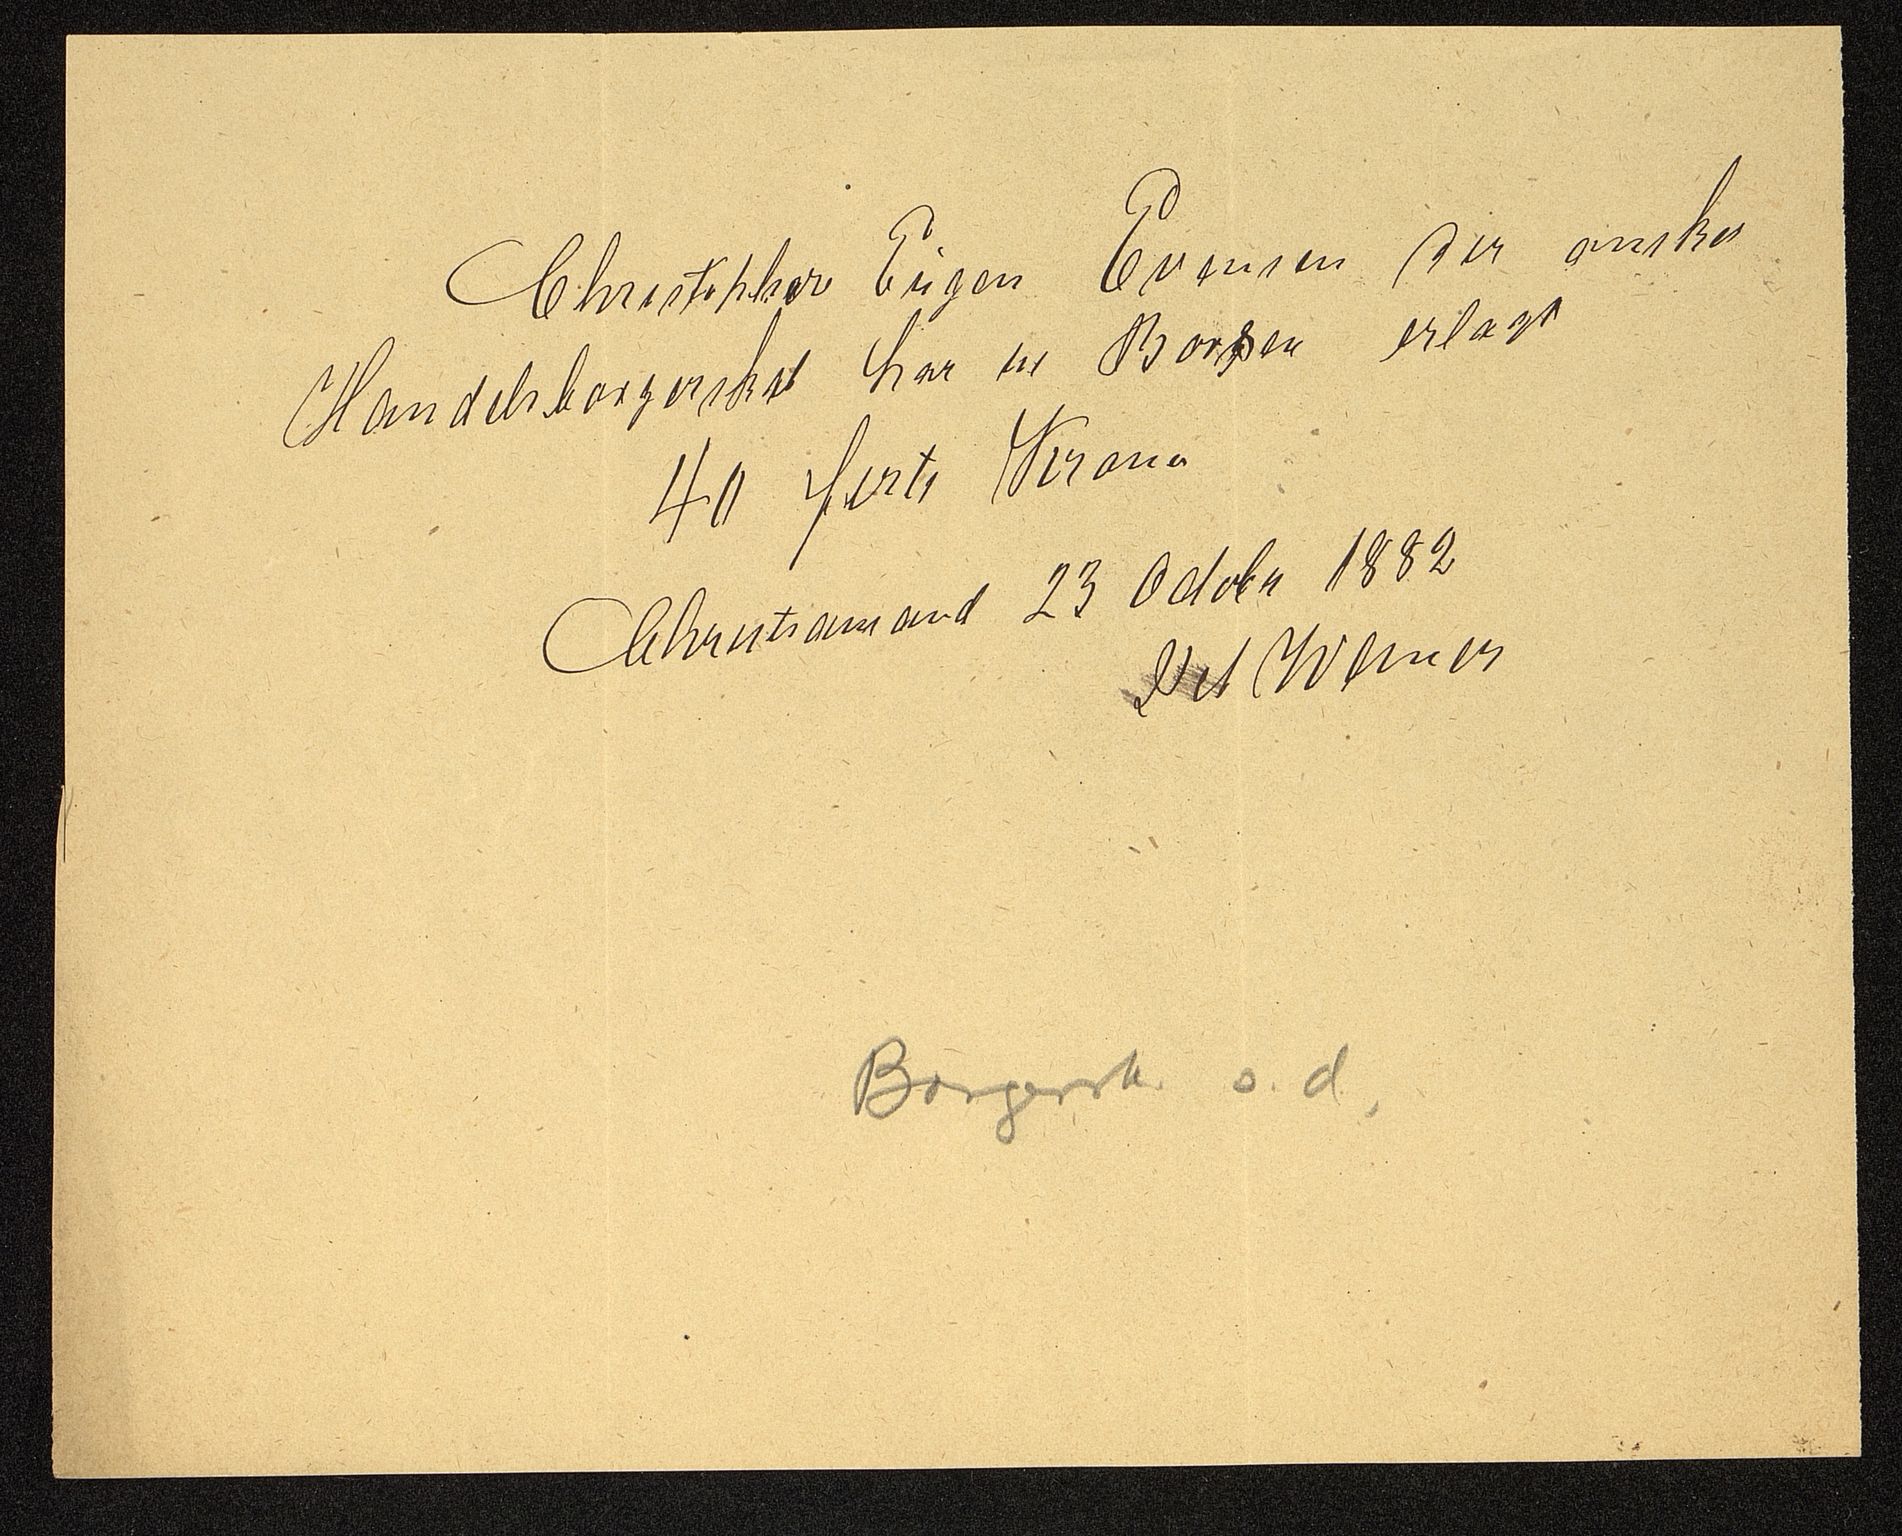 Christopher Eugen Evensen der ønsker
Handelsborgerskab har til Børsen erlagt
40 firti Kroner
Christiansand 23 October 1882
Werner
Borgersk. s. d.